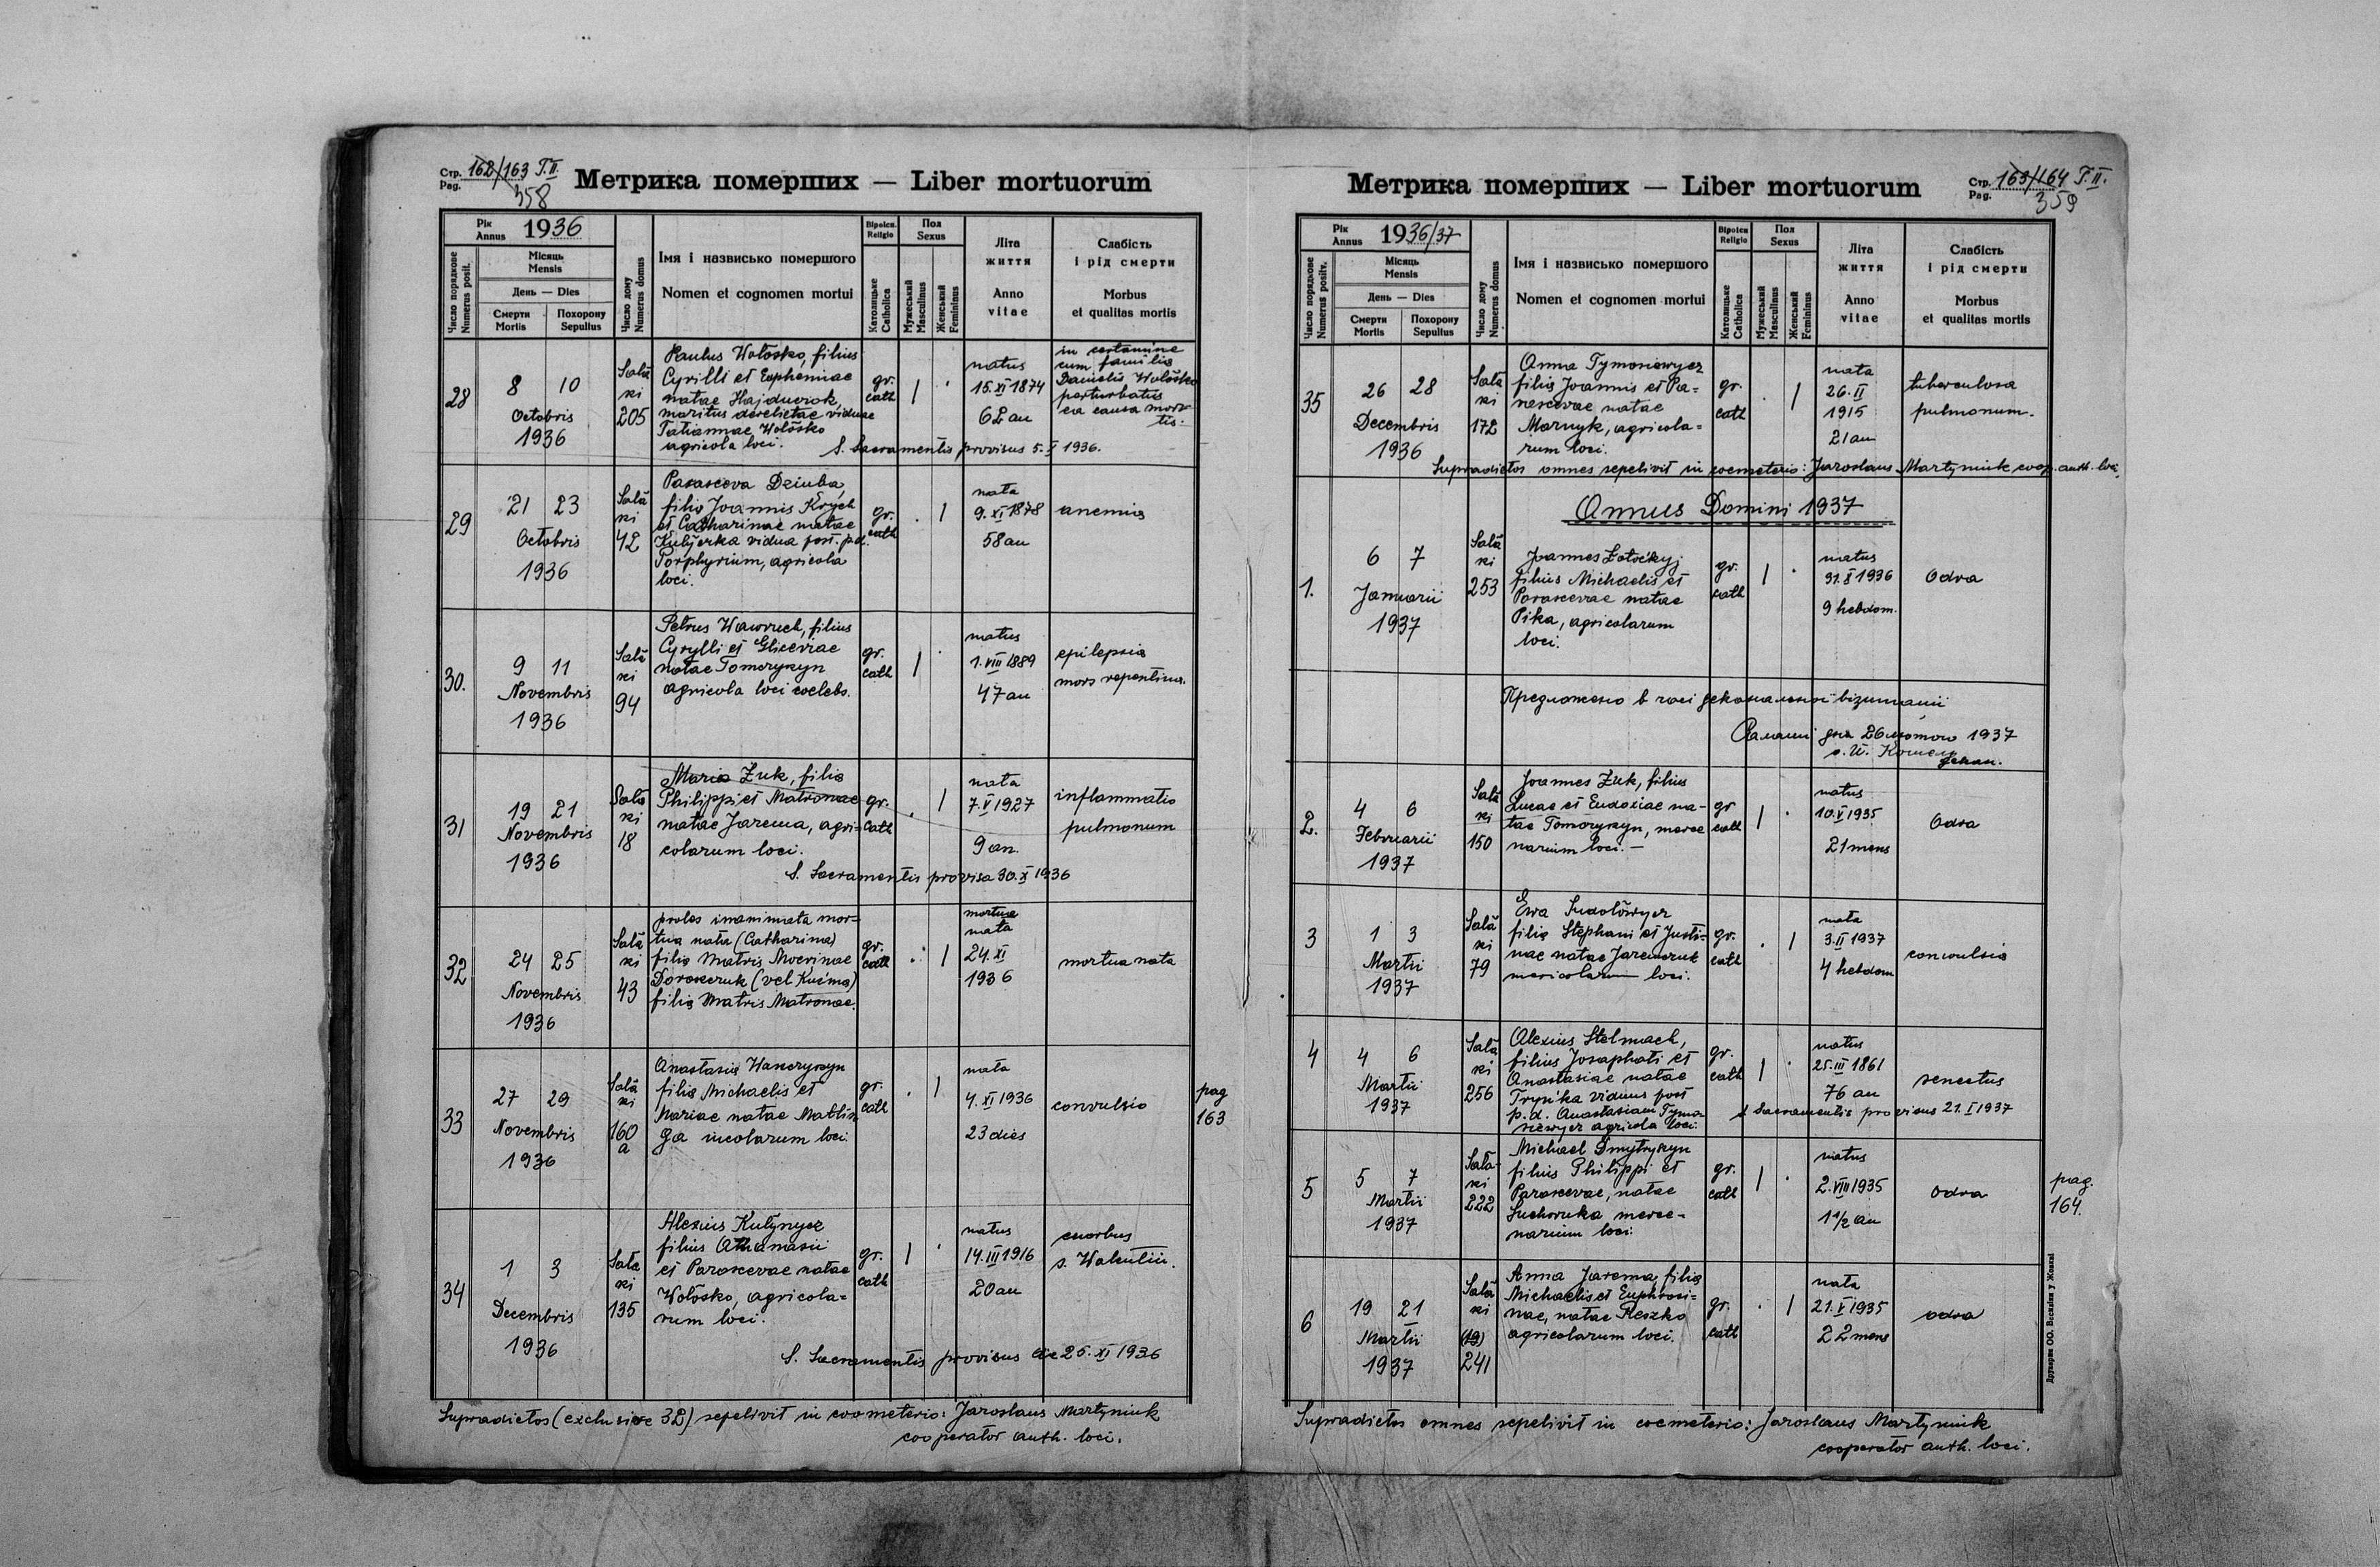 Стр. 162/163 T.II.
Pag. 358
Метрика померших — Liber mortuorum
Рік
Annus 1936
Число порядкове
Numerus posit.
Місяць
Mensis
День — Dies
Смерти
Mortis
Похорону
Sepultus
Число дому
Numerus domus
Імя і назвисько помершого
Nomen et cognomen mortui
Віроісп.
Religio
Католицьке
Catholica
Пол
Sexus
Мужеський
Masculinus
Женський
Femininus
Літа
життя
Anno
vitae
Слабість
і рід смерти
Morbus
et qualitas mortis
28
8 10
Octobris
1936
Sała
ki
205
Paulus Wołosko, filius
Cyrilli et Eupheniae
natae Hajduczok,
maritus derelictae viduae
Tatiannae Wołosko
agricola loci.
gr.
cath
natus
15.XI 1874
62 an
in certamine
cum familia
Danielis Wołosko
perturbatus
ea causa mor-
tis.
S. Sacramentis provisus 5.X 1936.
29
21 23
Octobris
1936
Sała
ki
42
Parasceva Dziuba,
filia Joannis Krych
et Catharinae natae
vidua post. p.d.
Porphyrium, agricola
loci.
gr.
cath
nata
9.XI 1878
58 an
anemia
30.
9 11
Novembris
1936
Sała
ki
94
Petrus Wawruch, filius
Cyrylli et Gliceriae
natae Tomczyszyn
agricola loci coelebs.
gr.
cath
natus
1.VIII 1889
47 an
epilepsia
mors repentina.
31
19 21
Novembris
1936
Sała
ki
18
Maria Żuk, filia
Philippi et Matronae
natae Jarema, agri-
colarum loci.
gr.
cath
nata
7.V 1927
9 an.
inflammatio
pulmonum
S. Sacramentis provisa 30.X 1936
32
24 25
Novembris
1936
Sała
ki
43
proles inanimata mor-
tua nata (Catharina)
filia Matris Mocrinae
Doroszczuk (vel Kućma)
filia Matris Matronae.
gr.
cath
mortua
nata
24.XI
1936
mortua nata
33
27 29
Novembris
1936
Sała
ki
160
a
Anastasia Wanczyszyn
filia Michaelis et
Mariae natae
incolarum loci.
gr.
cath
nata
4.XI 1936
23 dies
convulsio
pag
163
34
1 3
Decembris
1936
Sała
ki
135
Alexius Kułynycz
filius Athanasii
et Parascevae natae
Wołosko, agricola-
rum loci.
gr.
cath
natus
14.III 1916
20 an
morbus
s. Walentii.
S. Sacramentis provisus die 25.XI 1936
Supradictos (exclusive 32) sepelivit in coemeterio: Jaroslaus Martyniuk
cooperator auth. loci.
Стр. 163/164 T.II.
Pag. 359
Метрика померших — Liber mortuorum
Рік
Annus 1936/37
Число порядкове
Numerus positv.
Місяць
Mensis
День — Dies
Смерти
Mortis
Похорону
Sepultus
Число дому
Numerus domus
Імя і назвисько помершого
Nomen et cognomen mortui
Віроісп
Religio
Католицьке
Catholica
Пол
Sexus
Мужеський
Masculinus
Женський
Femininus
Літа
життя
Anno
vitae
Слабість
і рід смерти
Morbus
et qualitas mortis
35
26 28
Decembris
1936
Sała
ki
172
Anna Tymoniewycz
filia Joannis et Pa-
rascevae natae
Marnyk, agricola-
rum loci.
gr.
cath
nata
26.II
1915
21 an
tuberculosa
pulmonum.
Supradictos omnes sepelivit in coemeterio: Jaroslaus Martyniuk coop. auth. loci.
Annus Domini 1937
1.
6 7
Januarii
1937
Sała
ki
253
Joannes
filius Michaelis et
Parascevae natae
Pika, agricolarum
loci.
gr.
cath
natus
31.X 1936
9 hebdom.
Odra
Предложено в часі деканальної візитації
дня 26 лютого 1937
декан.
2.
4 6
Februarii
1937
Sała
ki
150
Joannes Żuk, filius
Lucae et Eudoxiae na-
tae Tomczyszyn, merce
narium loci. —
gr
cath
natus
10.V 1935
21 mens
Odra
3
1 3
Martii
1937
Sała
ki
79
Ewa Sudołowycz
filia Stephani et Justi-
nae natae Jaremczuk
loci.
gr.
cath
nata
3.II 1937
4 hebdom
convulsia
4
4 6
Martii
1937
Sała
ki
256
Alexius Stelmach,
filius Josaphati et
Anastasiae natae
Trynka viduus post
p.d. Anastasiam Tymo-
niewycz agricola loci.
gr.
cath
natus
25.III 1861
76 an
senectus
S Sacramentis provisus 21.I 1937
5
5 7
Martii
1937
Sała-
ki
222
Michael Dmytryszyn
filius Philippi et
Parascevae, natae
Suchoruka merce-
narium loci.
gr.
cath
natus
2.VIII 1935
1 1/2 an
odra
pag.
164.
6
19 21
Martii
1937
Sała
ki
(19)
241
Anna Jarema, filia
Michaelis et Euphrosi-
nae, natae Reszko
agricolarum loci.
gr.
cath
nata
21.V 1935
22 mens
odra
Supradictos omnes sepelivit in coemeterio: Jaroslaus Martyniuk
cooperator auth. loci.
Друкарня ОО. Василіян у Жовкві